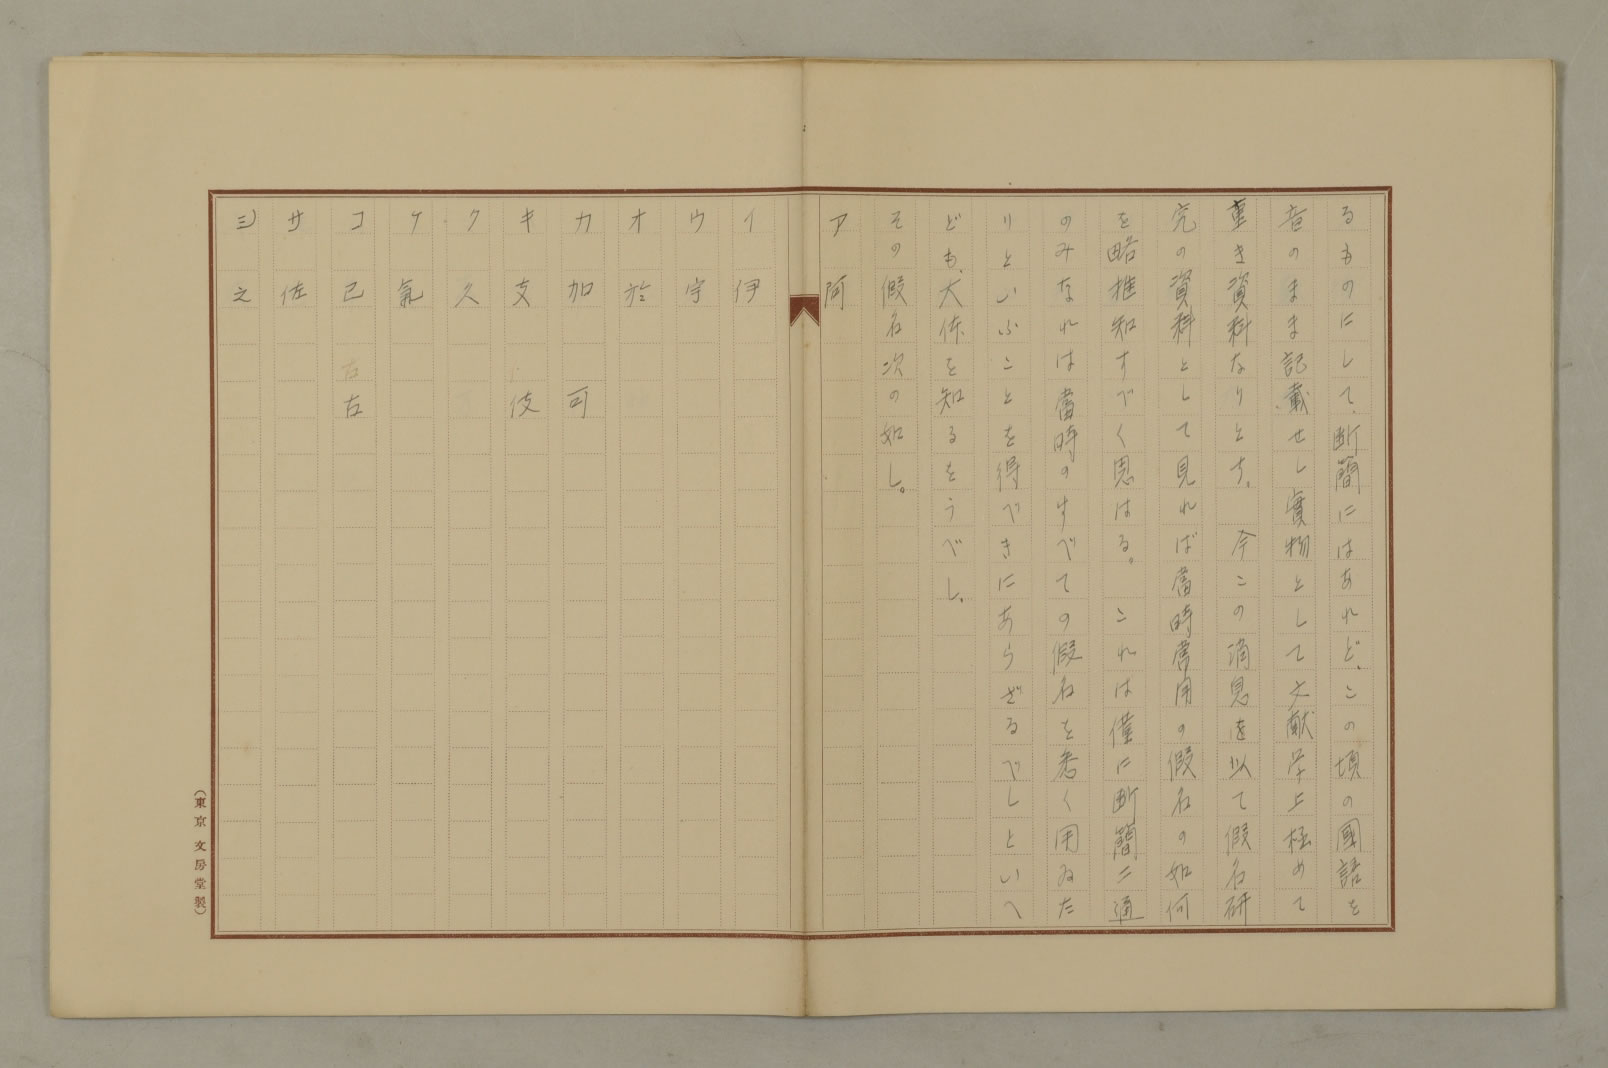 るものにして、断簡にはあれど、この頃の國語を
音のまま記載せし實物として文献学上極めて
重き資料なりとす。　今この消息を以て假名研
究の資料として見れば當時常用の假名の如何
を略推知すべく思はる。　これは僅に断簡二通
のみなれは當時のすべての假名を悉く用ゐた
りといふことを得べきにあらざるべしといへ
ども、大体を知るをうべし。
その假名次の如し。
ア　阿
イ　伊
ウ　宇
オ　於
カ　加　可
キ　支　伎
ク　久
ケ　氣
コ　己　古
サ　佐
シ　之
（東京 文房堂製）